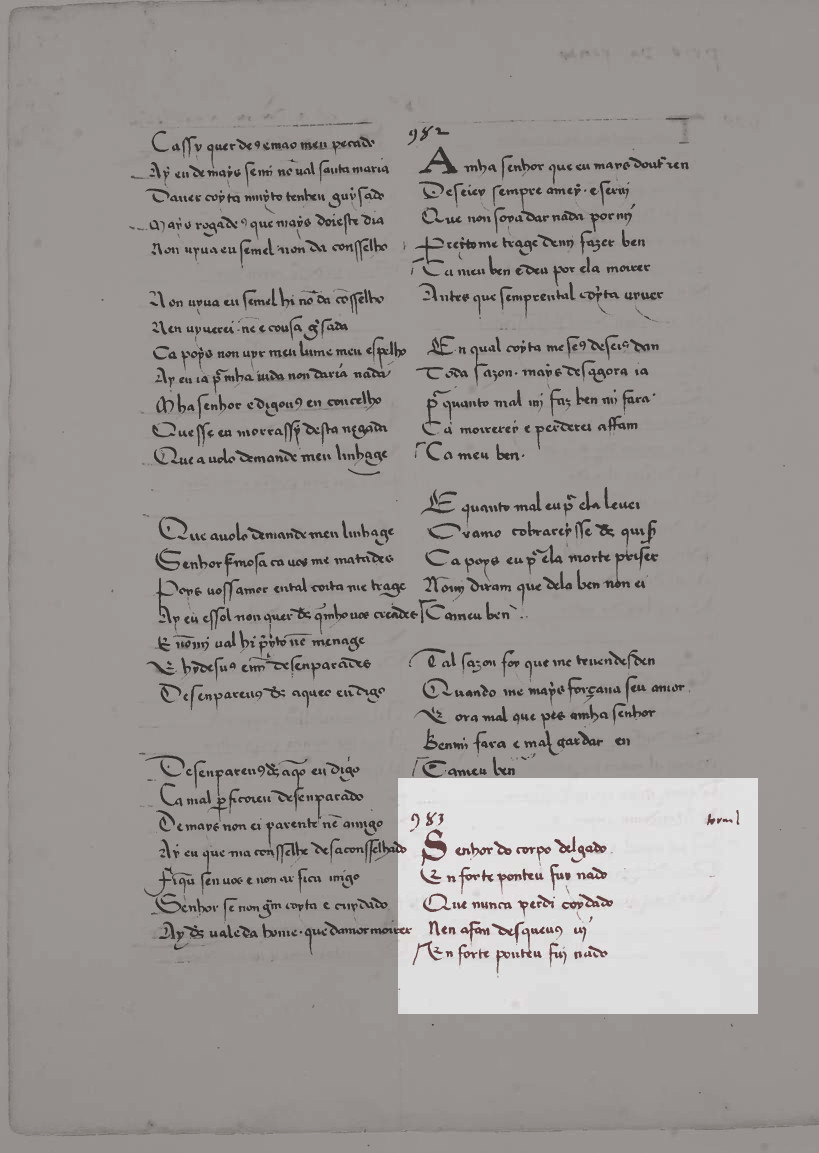 Cassy quer de9 emao meu pecado
Ay eu de mays semi nō ual santa maria
Dauer coyta muyto tenheu guysado
Mays rogade9 que mays doieste dia
Non uyua eu semel non da consselho
Non uyua eu semel hi nō da cōsselho
Nen uyuerei nē e cousa gⁱsada
Ca poys non uyr meu lume meu espelho
Ay eu ia p̄ mha uida non daria nada
Mha senhor e digou9 en concelho
Que sse eu morrassy desta uegada
Que a uolo demande meu linhage
Que auolo demande meu linhage
Senhor fremosa ca uos me matades
Poys uossamor ental coita me trage
Ay eu essol non quer ds q̄ mho uos creades
E nō mi ual hi p̄yto nē menage
E hydesu9 desenparades
Desenpareu9 ds aqueo eu digo
Desenpareu9 ds aqⁱo eu digo
Ca mal p̱ ficoreu desenparado
De mays non ei parente nē amigo
Ay eu que ma conselhe desaconsselhado
Fiq̄u sen uos e non ar fica migo
Senhor se non gⁱm coyta e cuydado
Ay ds ual e da home · que damor moirer
982
A mha senhor que eu mays doutⁱ ren
Deseiey sempre amey · e serui
Que non soya dar nada por mi
Preyto me trage de mi fazer ben
Ca meu ben e deu por ela moirer
Antes que semprental coyta uyuer
En qual coyta me se9 deseio9 dan
Toda sazon · mays desagora ia
p̄ quanto mal mi faz ben mi fara ·
Ca moirerey e perderei affam
Ca meu ben ·
E quanto mal eu p̄ ela leuei
Oramo cobrareysse ds quis
Ca poys eu p̄ ela morte priser
Nō mi diram que dela ben non ei
Ca meu ben
Tal sazon foy que me teuen desden
Quando me mays forçaua seu amor
E ora mal que pes amha senhor
Benmi fara e mal gardar en
Ca meu ben
983
tornel
Senhor do corpo delgado
En forte ponteu fuy nado
Que nunca perdi coydado
Nen afan desqueu9 ui
En forte ponteu fuj nado